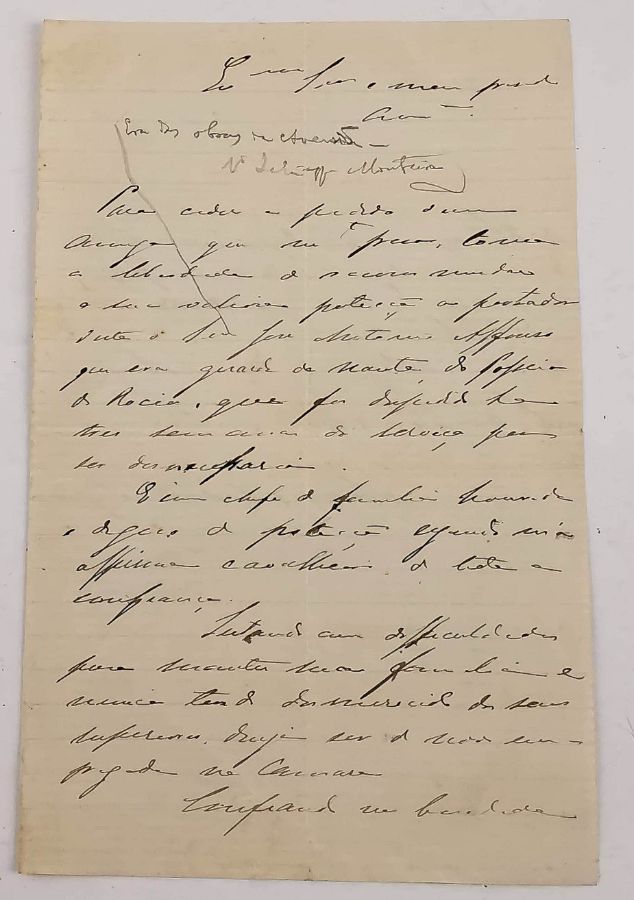 Exmo Snr e meu presado
Amo.
Era das obras da Avenida
Monteiro
Para ceder a pedido d'um
amigo que me é, tomo
a liberdade de recommendar
a sua valiosa protecção ao portador
d'esta o Snr José Antonio Affonso
que era guarda de do Passeio
do Rocio, que foi despedido ha
tres semanas do serviço, por
ser desnecessario.
É um chefe de familia honrado
e digno de protecção segundo me
affirma cavalheiro de toda a
confiança.
Lutando com difficuldades
para manter sua familia e
nunca tendo desmerecido dos seus
superiores, deseja ser de novo em-
pregado na Camara
Confiando na bondade